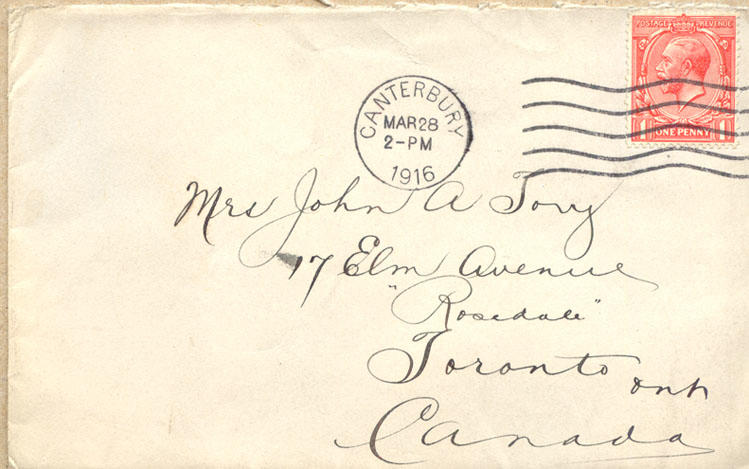 POSTAGE REVENUE
ONE PENNY
CANTERBURY
MAR 28
2-PM
1916
Mrs John A Tory
17 Elm Avenue
"Rosedale"
Toronto Ont
Canada